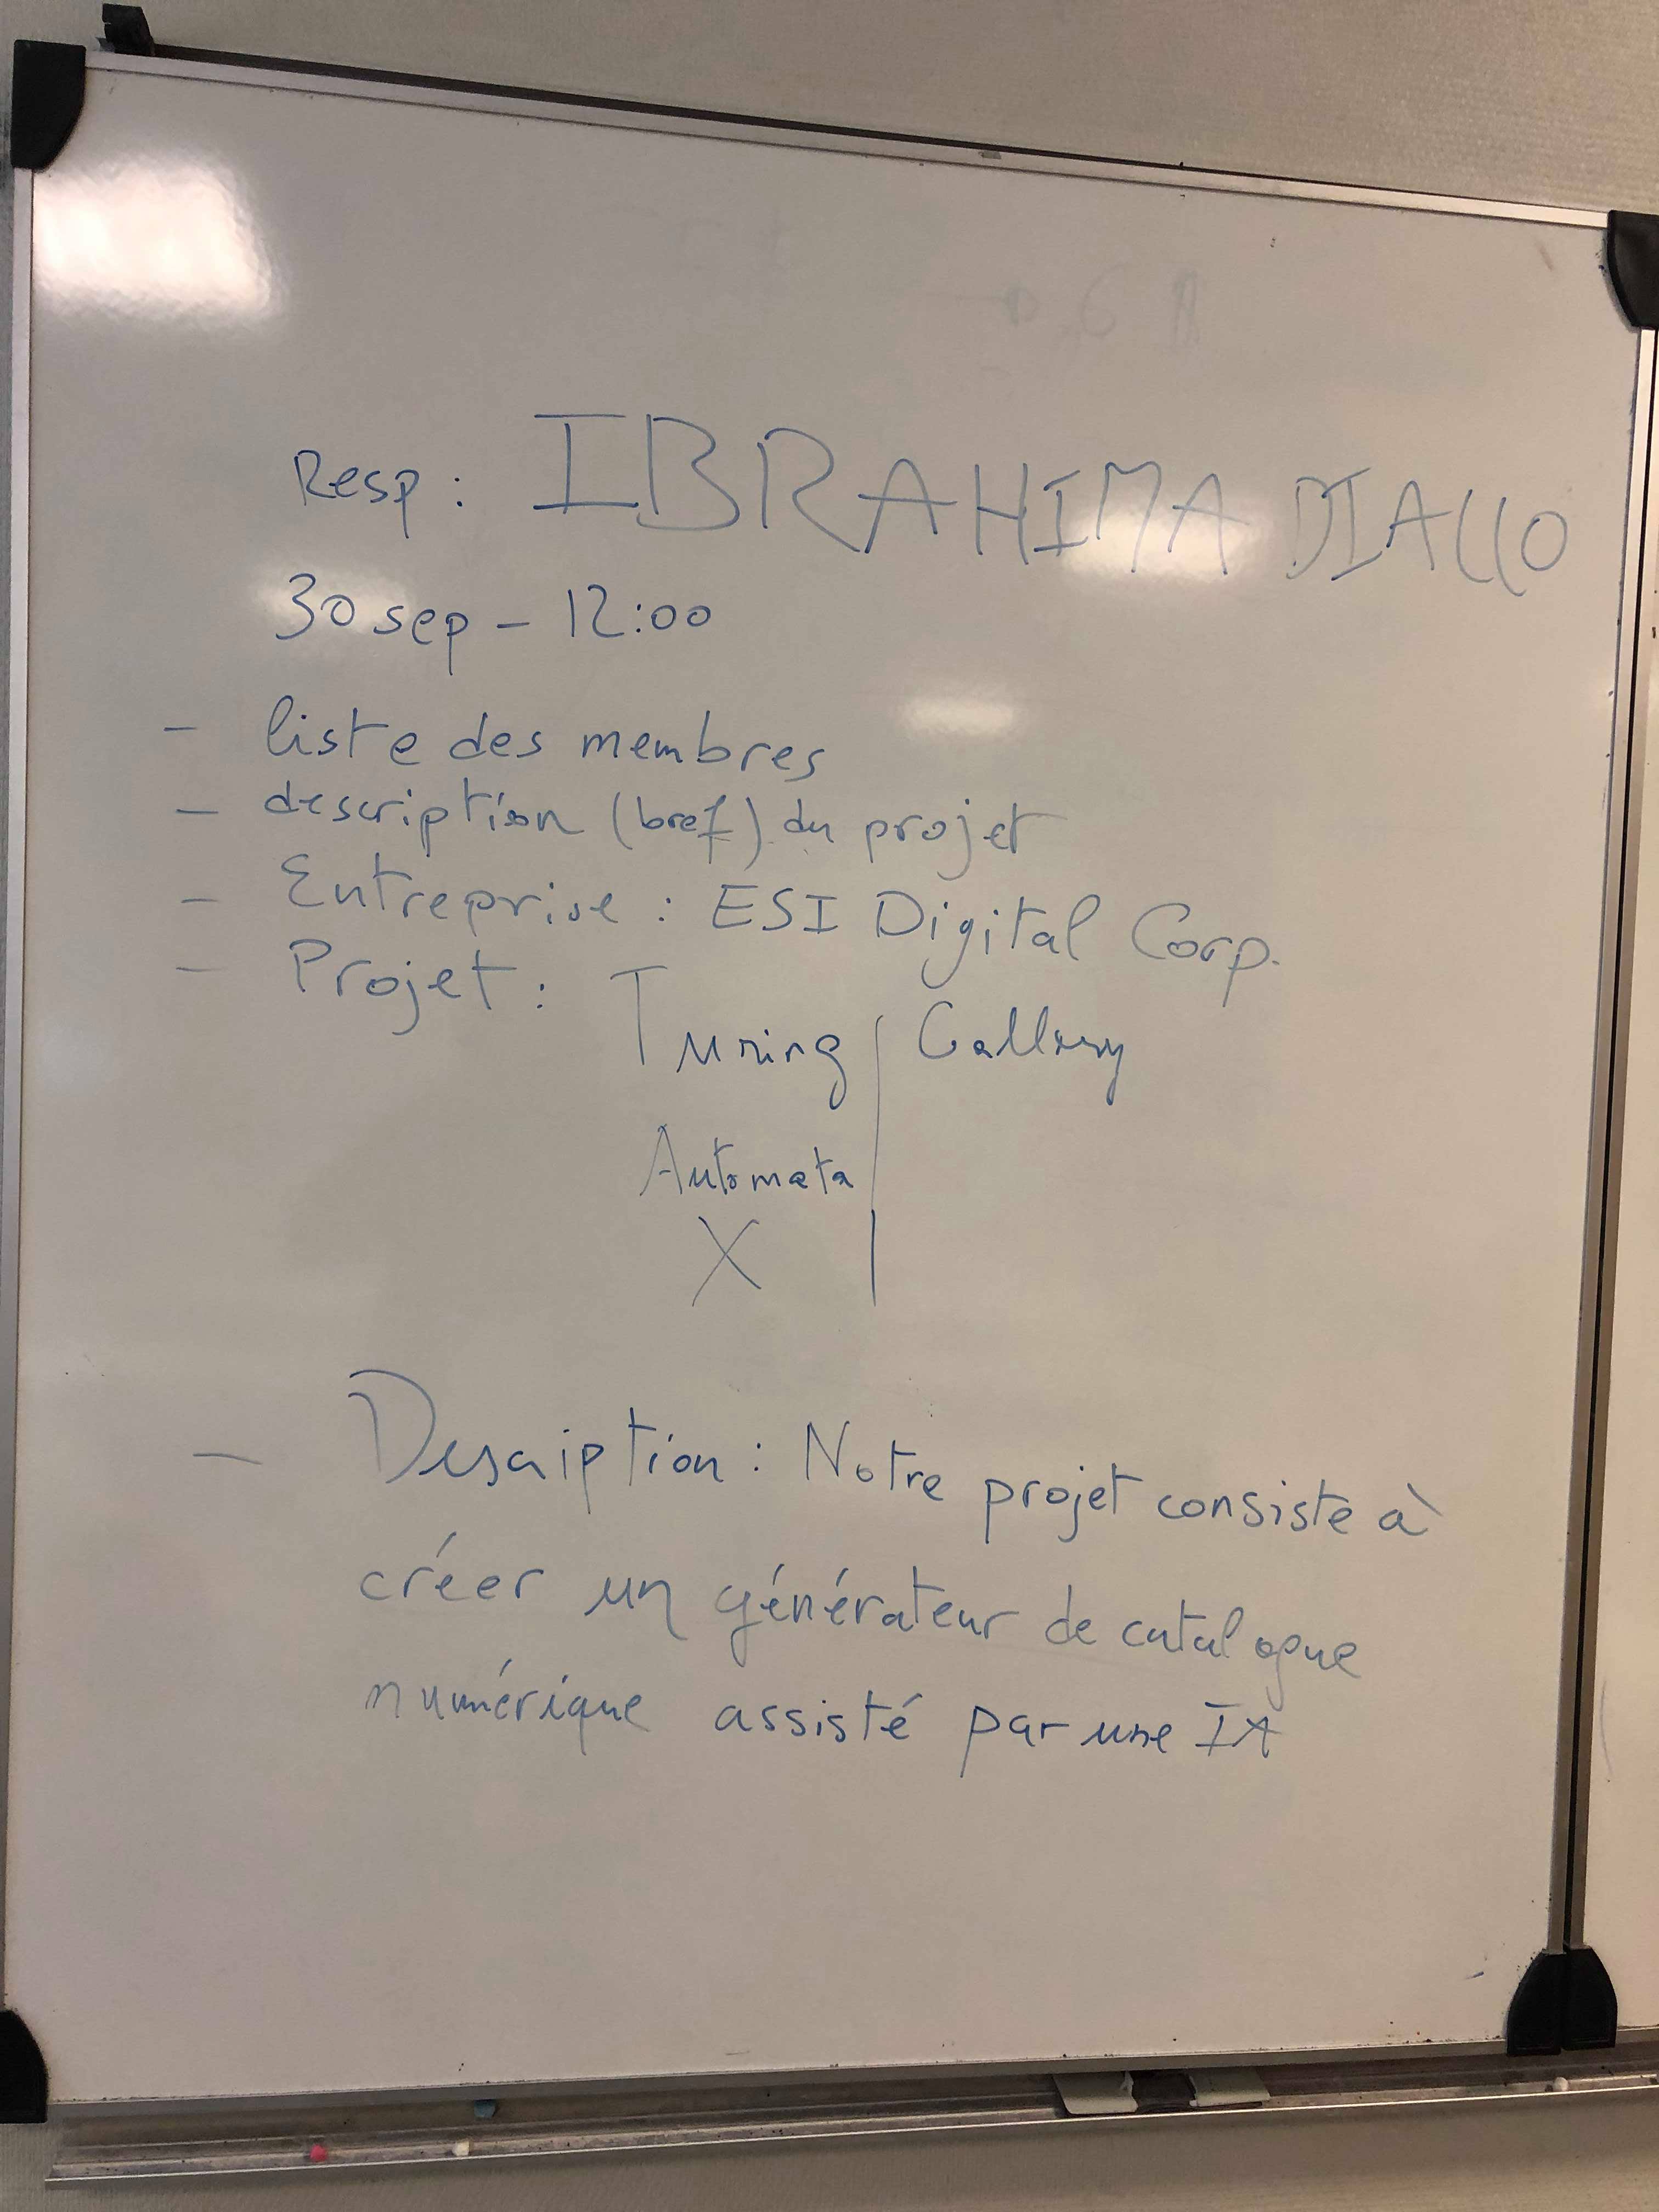 Resp : IBRAHIMA DIALLO
30 sep - 12:00
- liste des membres
- description (bref) du projet
- Entreprise : ESI Digital Corp.
- Projet : Turing | Gallery
Automata
X |
- Description : Notre projet consiste à
créer un générateur de catalogue
numérique assisté par une IA